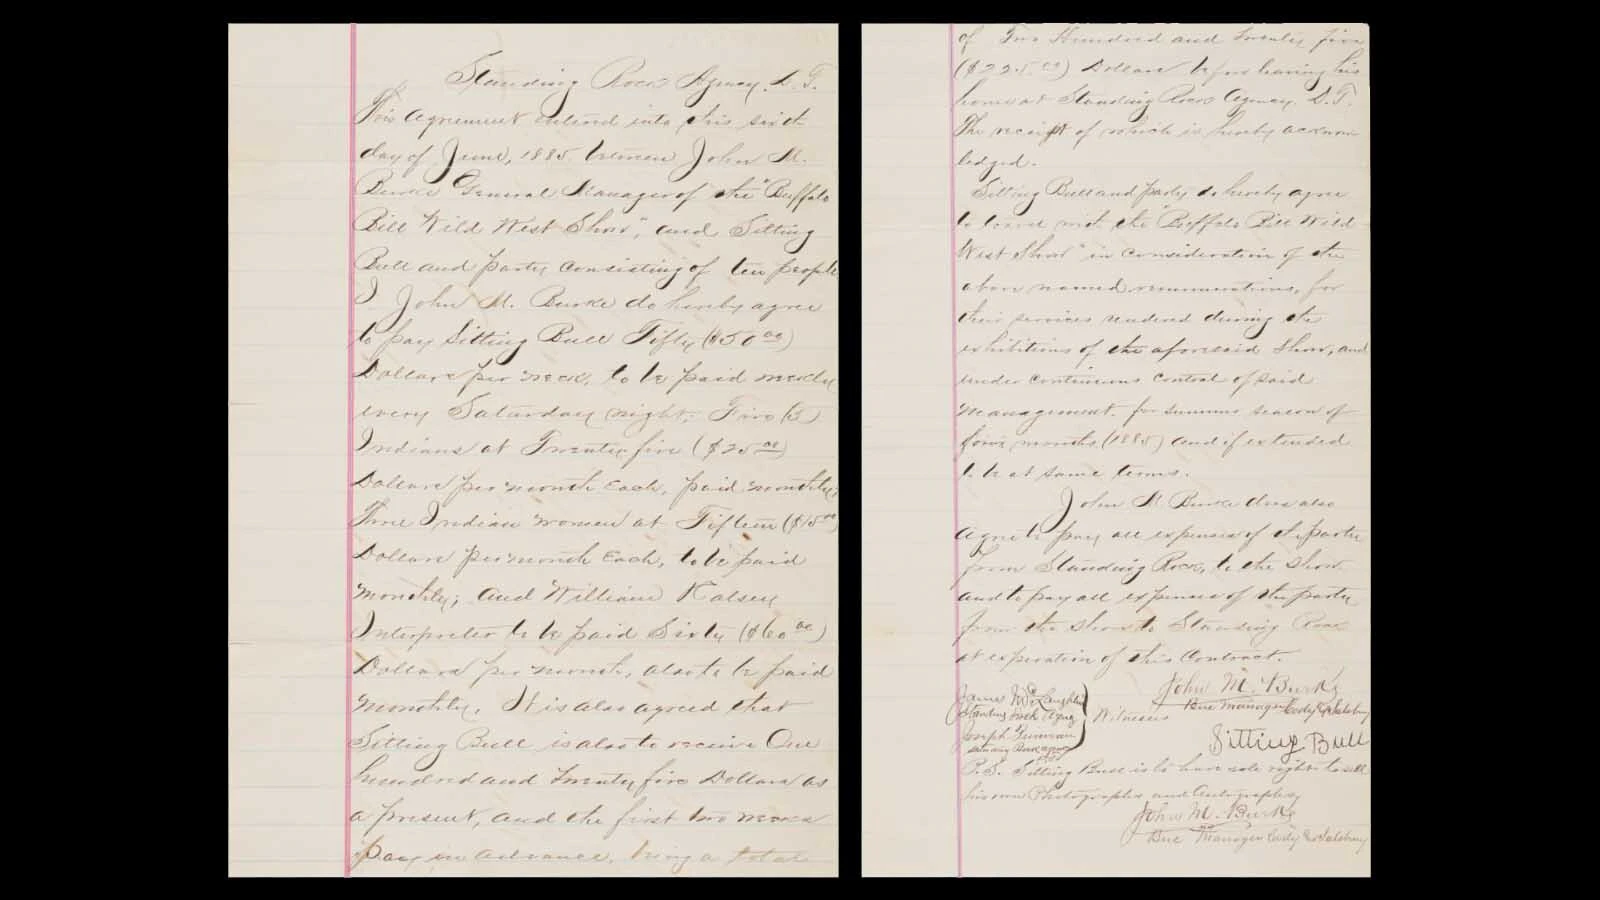 Standing Rock Agency, D. T.
This Agreement entered into this sixth
day of June, 1885 between John M.
Burke General Manager of the "Buffalo
Bill Wild West Show", and Sitting
Bull and party consisting of ten people
I John M. Burke do hereby agree
to pay Sitting Bull Fifty ($50 00)
Dollars per week, to be paid weekly
every Saturday night; Five (5)
Indians at Twenty five ($25 00)
Dollars per month each, paid monthly;
Three Indian women at Fifteen ($15 00)
Dollars per month each, to be paid
monthly; and William Halsey
Interpreter to be paid Sixty ($60 00)
Dollars per month, also to be paid
monthly. It is also agreed that
Sitting Bull is also to receive One
hundred and twenty five Dollars as
a present, and the first two weeks
Pay in advance, being a total
of Two Hundred and twenty five
($225.00) Dollars before leaving his
home at Standing Rock Agency D.T.
The receipt of which is hereby acknow
ledged.
Sitting Bull and party do hereby agree
to travel with the "Buffalo Bill Wild
West Show" in consideration of the
above named remunerations, for
their services rendered during the
exhibitions of the aforesaid Show, and
under continuous control of said
management. for summer season of
four months (1885) and if extended
to be at same terms.
John M Burke does also
agree to pay all expenses of the party
from Standing Rock, to the show
and to pay all expenses of the party
from the show to Standing Rock
at experation of this Contract.
James McLaughlin
Standing Rock Agency
Joseph
Witnesses
John M. Burke
Bus Manager Cody & Salsbury
Sitting Bull
P.S. Sitting Bull is to have sole right to sell
his own Photographs and Autographs
John M. Burke
Bus Manager Cody & Salsbury